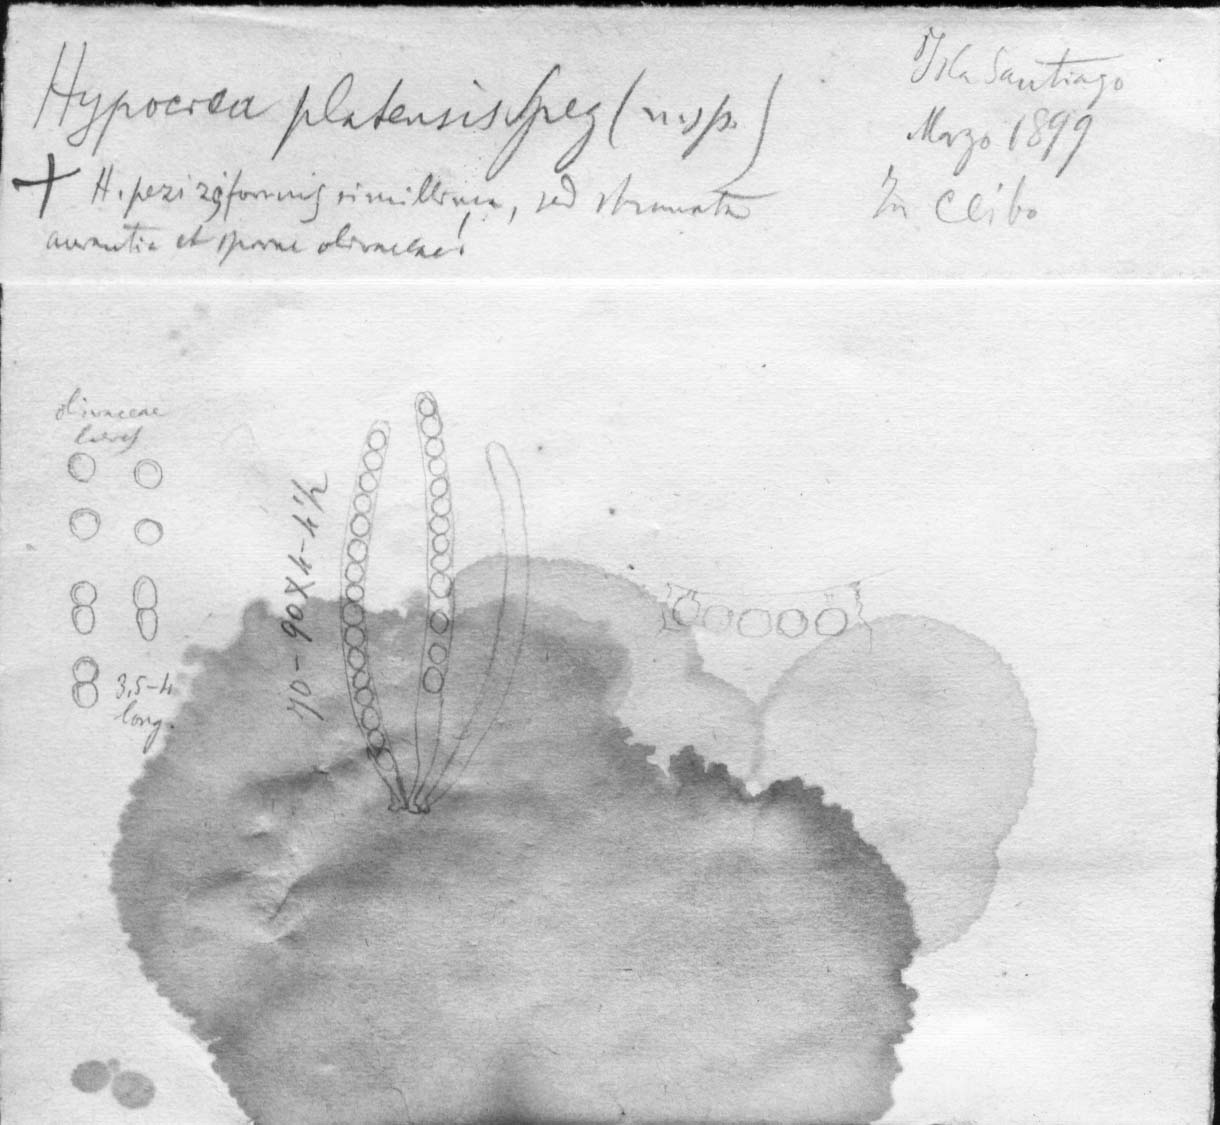 Hypocrea platensis Speg (n. sp.)
+ H. pezizaeformis simillima, sed stromata
aurantia et sporae olivaceae!
Isla Santiago
Marzo 1899
In Ceibo
olivaceae
laeves
70-90 x 4-4½
3,5-4
long.